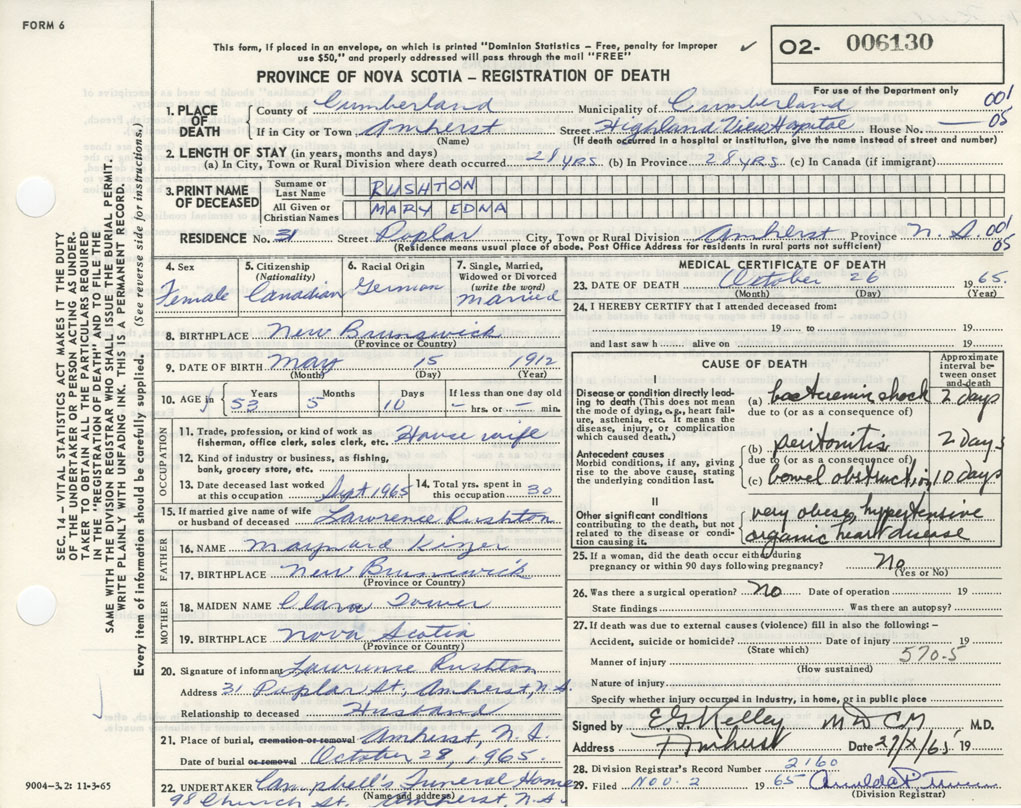 FORM 6
This form, if placed in an envelope, on which is printed "Dominion Statistics – Free, penalty for improper
use $50," and properly addressed will pass through the mail "FREE"
✓
O2- 006130
For use of the Department only
PROVINCE OF NOVA SCOTIA – REGISTRATION OF DEATH
1. PLACE OF DEATH
County of Cumberland Municipality of Cumberland 001
If in City or Town Amherst Street Highland View Hospital House No. 05
(Name) (If death occurred in a hospital or institution, give the name instead of street and number)
2. LENGTH OF STAY (in years, months and days)
(a) In City, Town or Rural Division where death occurred 28 yrs (b) In Province 28 yrs. (c) In Canada (if immigrant)
3. PRINT NAME OF DECEASED
Surname or Last Name RUSHTON
All Given or Christian Names MARY EDNA
RESIDENCE No. 31 Street Poplar City, Town or Rural Division Amherst Province N.S. 001
(Residence means usual place of abode. Post Office Address for residents in rural parts not sufficient) 05
4. Sex
Female
5. Citizenship
(Nationality)
Canadian
6. Racial Origin
German
7. Single, Married,
Widowed or Divorced
(write the word)
married
8. BIRTHPLACE New Brunswick
(Province or Country)
9. DATE OF BIRTH May 15 1912
(Month) (Day) (Year)
10. AGE in Years Months Days If less than one day
53 5 10 – hrs. or – min.
OCCUPATION
11. Trade, profession, or kind of work as
fisherman, office clerk, sales clerk, etc. House wife
12. Kind of industry or business, as fishing,
bank, grocery store, etc.
13. Date deceased last worked
at this occupation Sept 1965
14. Total yrs. spent in
this occupation 30
15. If married give name of wife
or husband of deceased Lawrence Rushton
FATHER
16. NAME Maynard
17. BIRTHPLACE New Brunswick
(Province or Country)
MOTHER
18. MAIDEN NAME Clara Tower
19. BIRTHPLACE Nova Scotia
(Province or Country)
20. Signature of informant Lawrence Rushton
Address 31 Poplar St, Amherst, N.S.
Relationship to deceased Husband
21. Place of burial, cremation or removal Amherst, N.S.
Date of burial or removal October 28, 1965.
22. UNDERTAKER Campbell's Funeral Home
(Name and address)
98 Church St. Amherst, N.S.
MEDICAL CERTIFICATE OF DEATH
23. DATE OF DEATH October 26 1965.
(Month) (Day) (Year)
24. I HEREBY CERTIFY that I attended deceased from:
19 to 19
and last saw h alive on 19
CAUSE OF DEATH
Approximate
interval be-
tween onset
and death
I
Disease or condition directly lead-
ing to death (This does not mean
the mode of dying, e.g., heart fail-
ure, asthenia, etc. It means the
disease, injury, or complication
which caused death.)
(a) bacteremic shock 2 days
due to (or as a consequence of)
Antecedent causes
Morbid conditions, if any, giving
rise to the above cause, stating
the underlying condition last.
(b) peritonitis 2 Days
due to (or as a consequence of)
(c) bowel obstruction 10 days
II
Other significant conditions
contributing to the death, but not
related to the disease or condi-
tion causing it.
very obese, hypertensive
organic heart disease
25. If a woman, did the death occur either during
pregnancy or within 90 days following pregnancy? No
(Yes or No)
26. Was there a surgical operation? No Date of operation 19
State findings Was there an autopsy?
27. If death was due to external causes (violence) fill in also the following:–
Accident, suicide or homicide? Date of injury 19
(State which) 570-5
Manner of injury
(How sustained)
Nature of injury
Specify whether injury occurred in Industry, in home, or in public place
Signed by E G Kelley MD CM M.D.
Address Amherst Date 27/X/65 19
28. Division Registrar's Record Number 2160
29. Filed NOV. 2 1965
(Division Registrar)
SEC. 14 – VITAL STATISTICS ACT MAKES IT THE DUTY
OF THE UNDERTAKER OR PERSON ACTING AS UNDER-
TAKER TO OBTAIN ALL THE PARTICULARS REQUIRED
IN THE "REGISTRATION OF DEATH" AND TO FILE THE
SAME WITH THE DIVISION REGISTRAR WHO SHALL ISSUE THE BURIAL PERMIT.
WRITE PLAINLY WITH UNFADING INK. THIS IS A PERMANENT RECORD.
Every item of information should be carefully supplied. (See reverse side for instructions.)
9004-3.2: 11-3-65